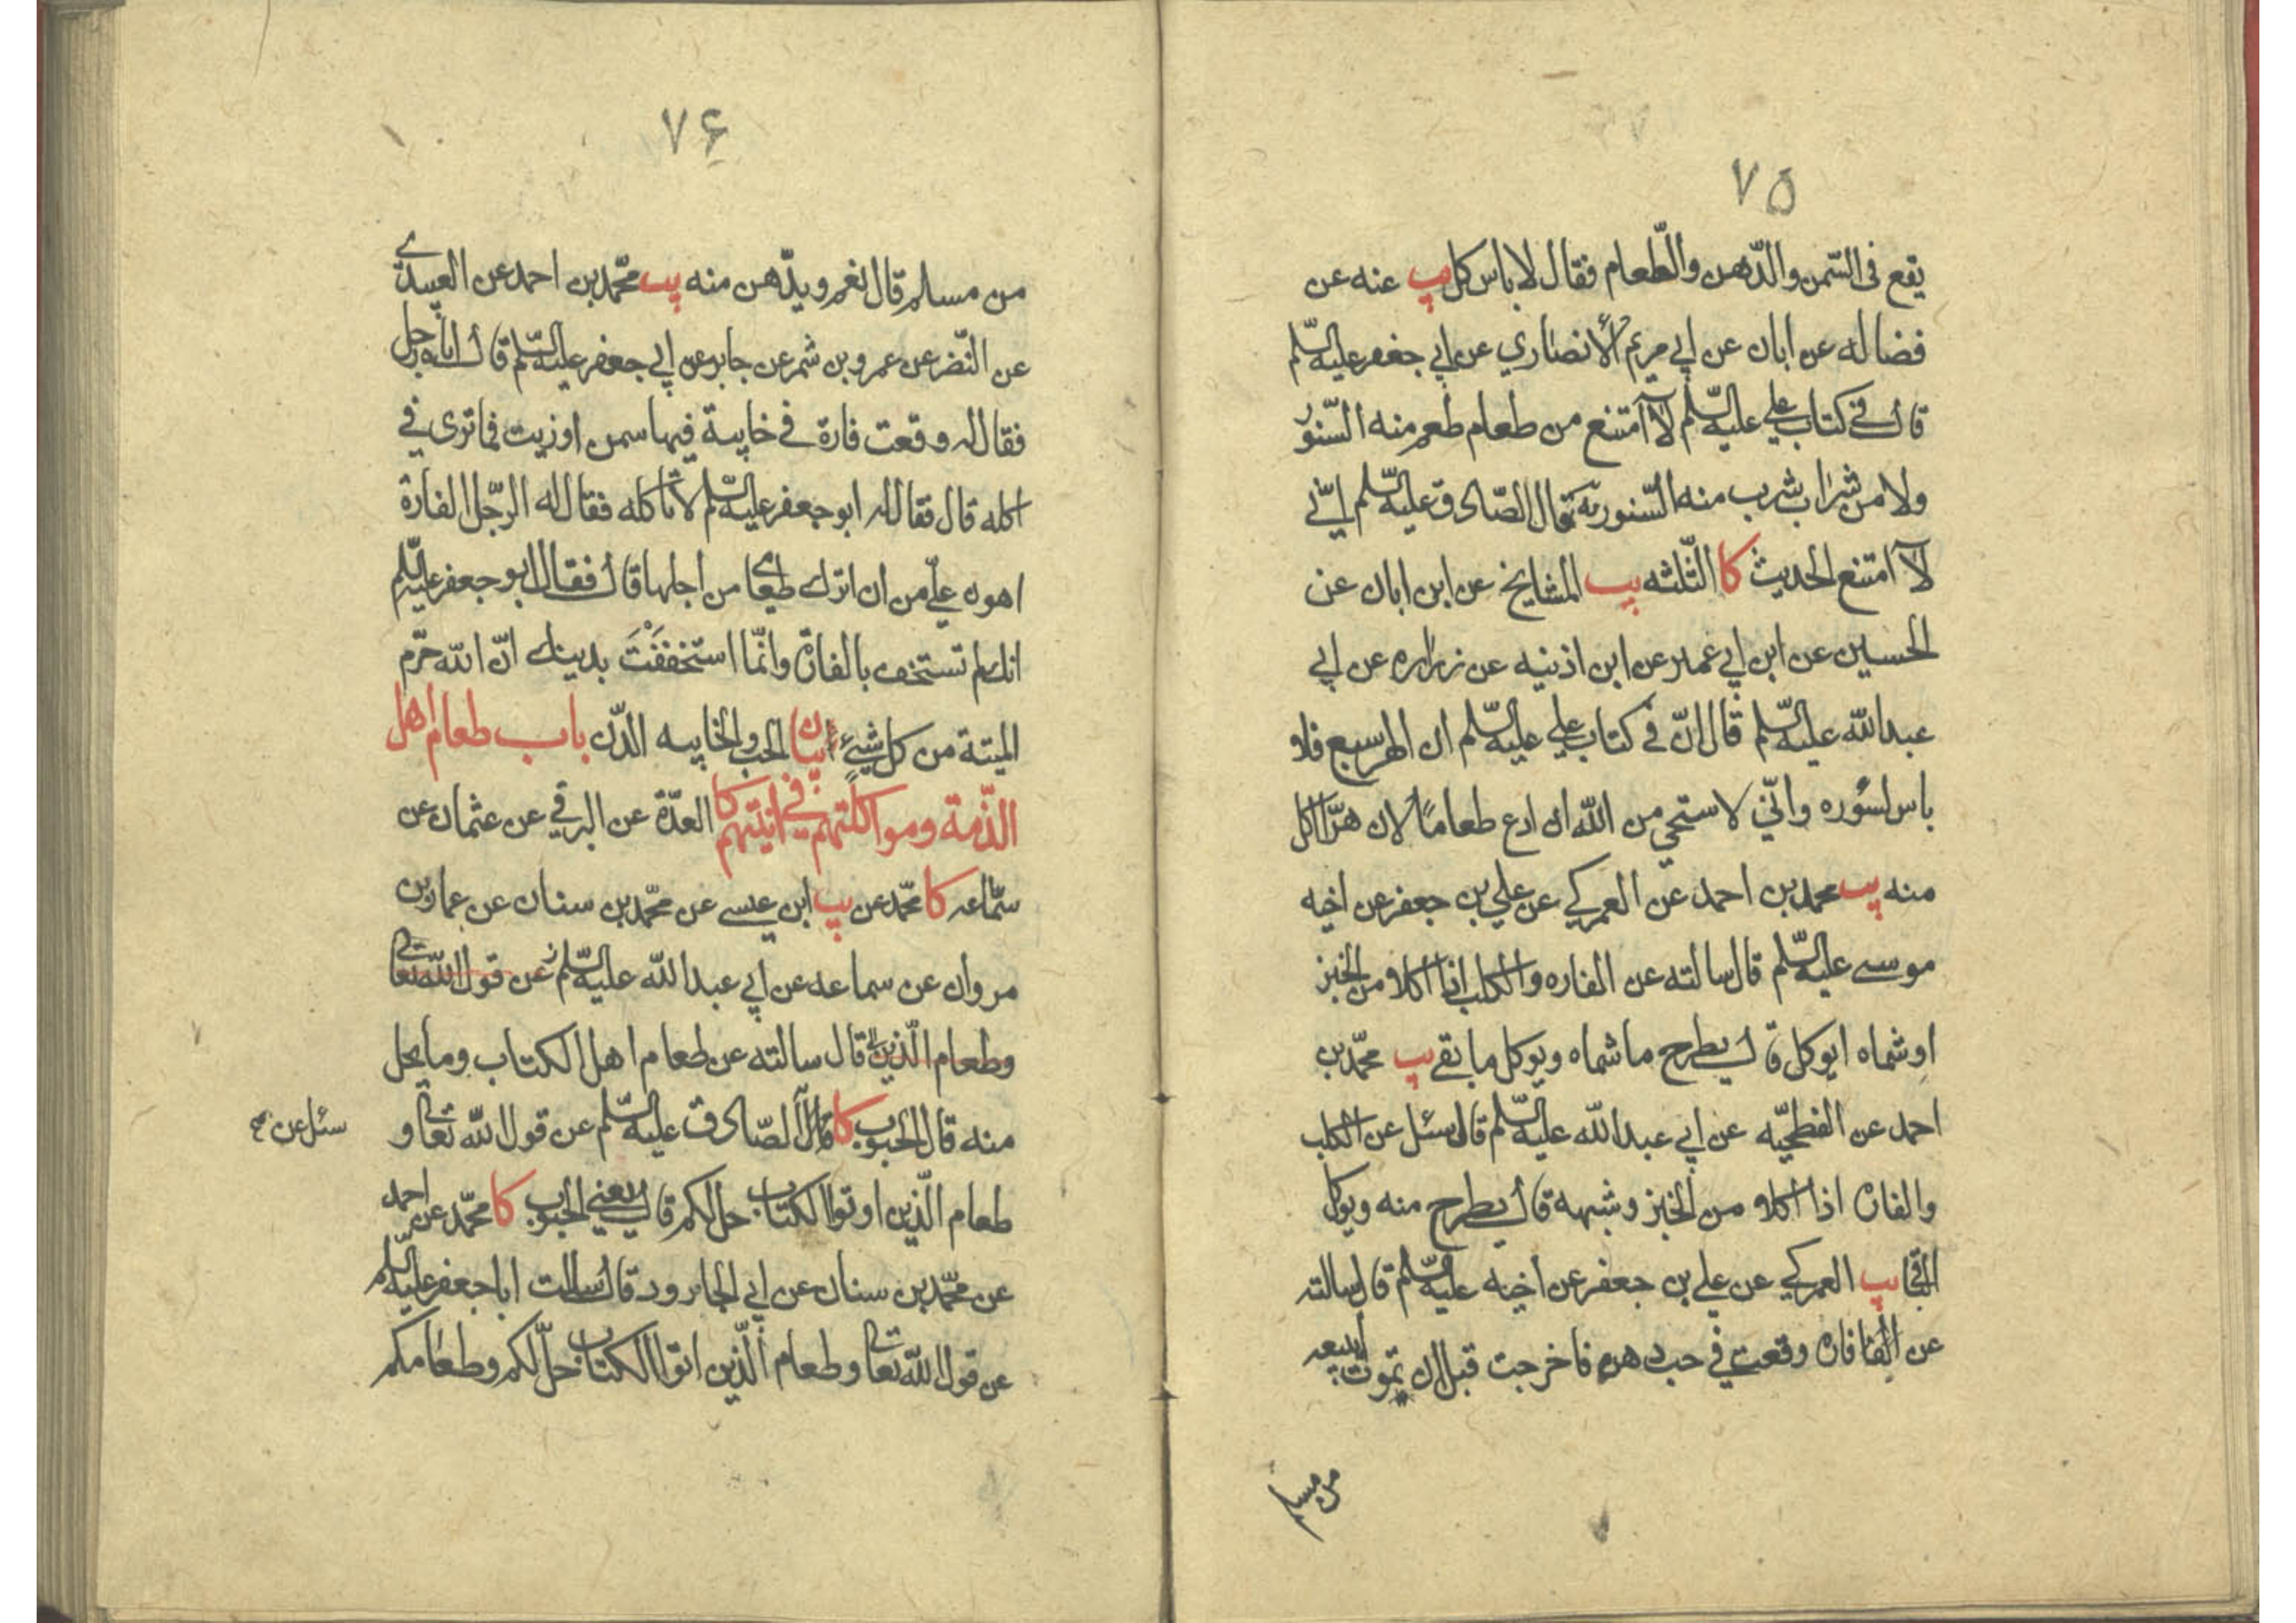 ٧٥
يقع فى السّمن والدّهن والطّعام فقال لا باس كل يب عنه عن
فضاله عن ابان عن ابي مريم الأنصاري عن ابي جعفر عليه السّلم
قال في كتاب علي عليه السّلم لا امتنع من طعام طعم منه السّنور
ولا من شراب شرب منه السّنور يه قال الصّادق عليه السّلم اني
لا امتنع الحديث كا الثّلثه يب المشايخ عن ابن ابان عن
الحسين عن ابن ابي عمير عن ابن اذنيه عن زراره عن ابي
عبدالله عليه السّلم قال انّ في كتاب علي عليه السّلم ان الهر سبع فلا
باس لسؤره وانّي لاستحي من الله ان ادع طعاماً لان هرّا اكل
منه يب محمد بن احمد عن العمركي عن علي بن جعفر عن اخيه
موسى عليه السّلم قال سالته عن الفاره والكلب اذا اكلا من الخبز
اوشماه ايوكل قال يطرح ما شماه ويوكل ما بقي يب محمّد بن
احمد عن الفطحيّه عن ابي عبدالله عليه السّلم قال سئل عن الكلب
والفاره اذا اكلا من الخبز وشبهه قال يطرح منه ويوكل
الباقي يب العمركي عن علي بن جعفر عن اخيه عليه السّلم قال سالته
عن فارة وقعت في حب دهن فاخرجت قبل ان تموت ابيعه
من مسلم
٧۶
من مسلم قال نعم ويدّهن منه يب محمّد بن احمد عن العبيدي
عن النّضر عن عمرو بن شمر عن جابر عن ابي جعفر عليه السّلم قال اتاه رجل
فقال له وقعت فارة في خابية فيها سمن اوزيت فما ترى في
اكله قال فقال له ابو جعفر عليه السّلم لا تاكله فقال له الرّجل الفارة
اهون عليّ من ان اترك طعامي من اجلها قال فقال ابو جعفر عليه السّلم
انك لم تستخف بالفارة وانّما استخففت بدينك انّ الله حرّم
الميتة من كل شيئ بيان الحب والخابيه الدّن باب طعام اهل
الذّمة ومواكلتهم في انيتهم كا العدّة عن البرقي عن عثمان عن
سمّاعه كا محمّد عن يب ابن عيسى عن محمّد بن سنان عن عمار بن
مروان عن سماعه عن ابي عبدالله عليه السّلم عن قول الله تعالى
وطعام الّذين قال سالته عن طعام اهل الكتاب وما يحل
منه قال الحبوب كا قال الصّادق عليه السّلم عن قول الله تعالى و
سئل عن صح
طعام الّذين اوتوا الكتاب حل لكم قال يعني الحبوب كا محمّد عن احمد
عن محمّد بن سنان عن ابي الجارود قال سالت ابا جعفر عليه السّلم
عن قول الله تعالى وطعام الّذين اتوا الكتاب حلّ لكم وطعامكم